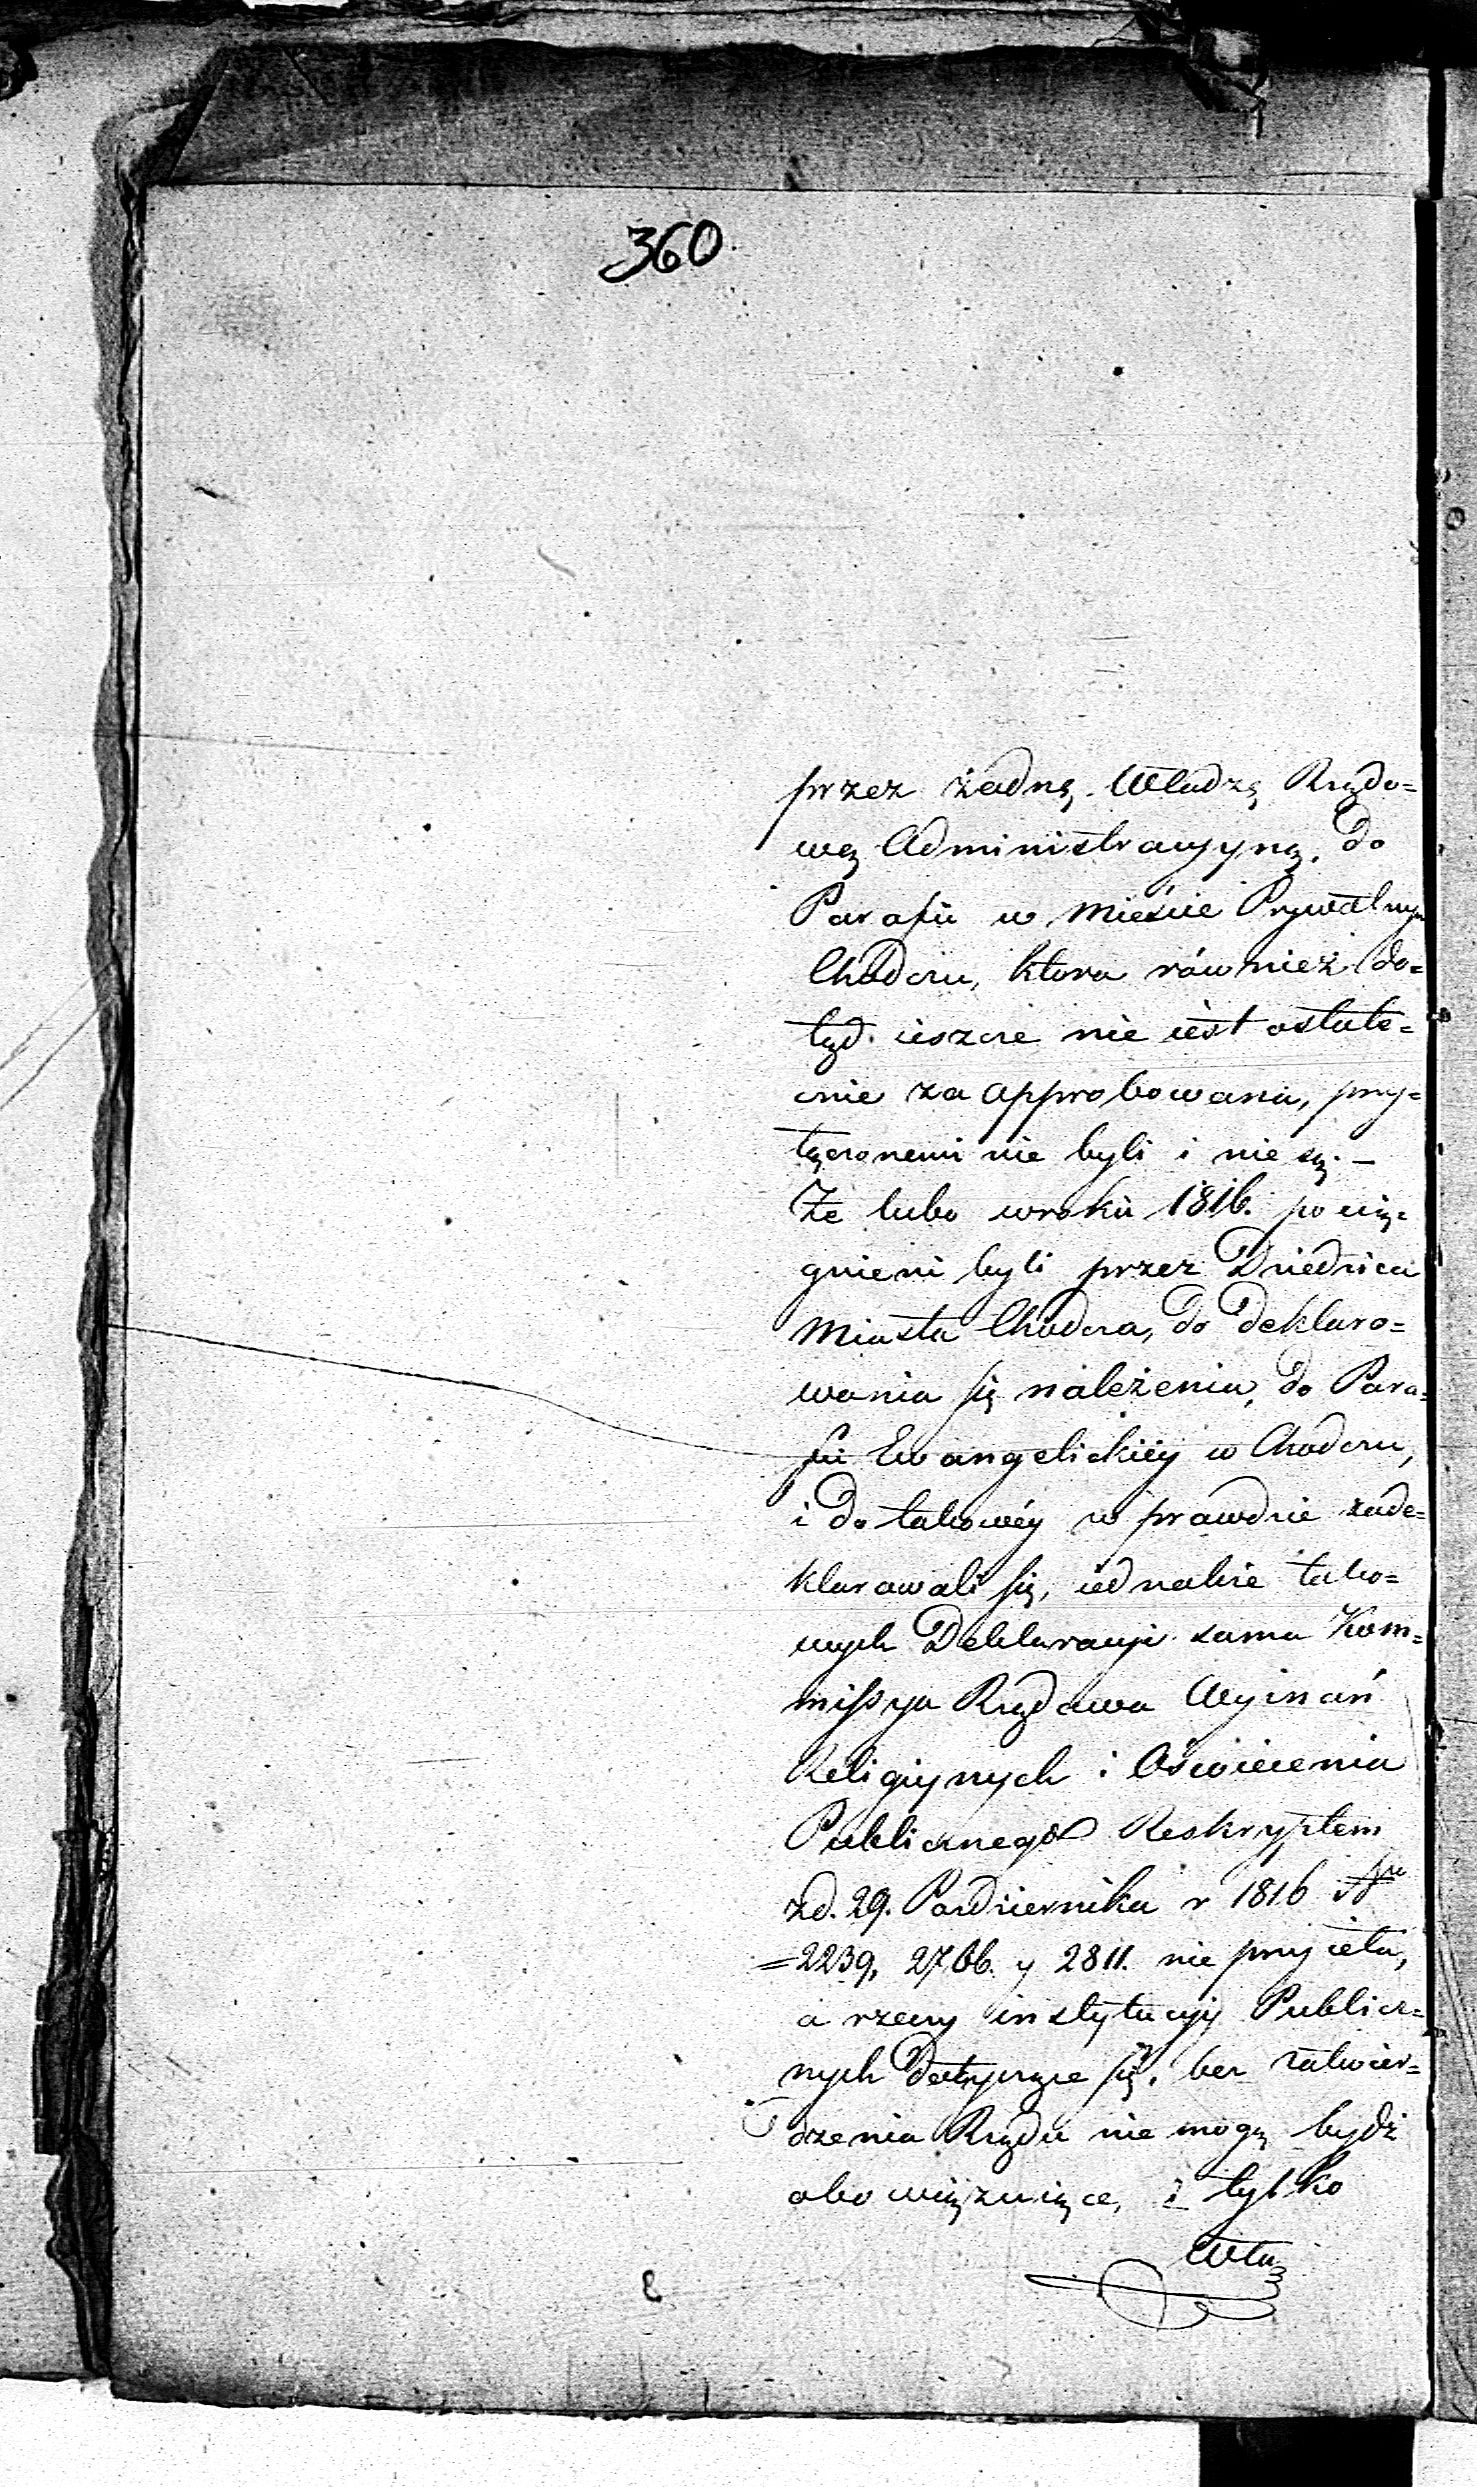 360
przez żadną Władzę Rządo=
wą Administracyyną, do
Parafii w Mieście Prywatnym
Chodczu, ktora równieź do=
tąd ieszcze nie iest ostate=
cznie za approbowana, przy=
łączonemi nie byli i nie są. —
Że lubo w roku 1816. pocią=
gnieni byli przez Dziedzica
Miasta Chodcza, do Deklaro=
wania się należenia, do Para=
fii Ewangelickiéy w Chodczu,
i do takowéy w prawdzie zade=
klarowali się, iednakże tako=
wych Deklaracyi sama Kom=
missya Rządowa Wyznań
Religiynych i Oświecenia
Publicznego Reskryptem
z d. 29. Października r 1816 Nru
=2239, 2766. y 2811. nie przyięła,
a rzeczy instytucyy Publicz=
nych dotyczące się, bez zatwier=
dzenia Rządu nie mogą bydź
obowiązuiące, i tylko
Wła